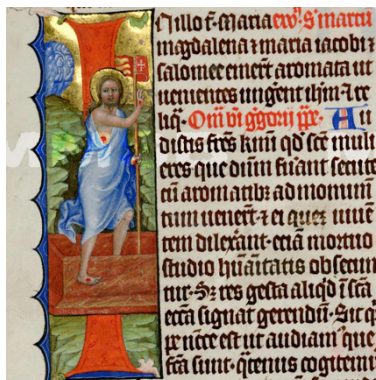 N illo t. Maria ew. S. marcu
magdalena ⁊ maria iacobi ⁊
salomee emert aromata ut
uenientes ungerent ihm ⁊ re
liq. Om̄ bi ggorij pp̄e. Au
distis fr̄es km̄i qd̄ sc̄e muli
eres que dn̄m fuāant secute
cū aromatibꝫ ad monumē
tum uenert ⁊ ei quez uiuē
tem dilexāant etiā mortuo
studio hūāitatis obsecun
tur. Sꝫ res gesta aliqͥd ī sc̄a
ecc̄a signat gerendū. Sic qͥ
pe nc̄cē est ut audiam que
fc̄a sunt. qͣtenus cogitemꝰ